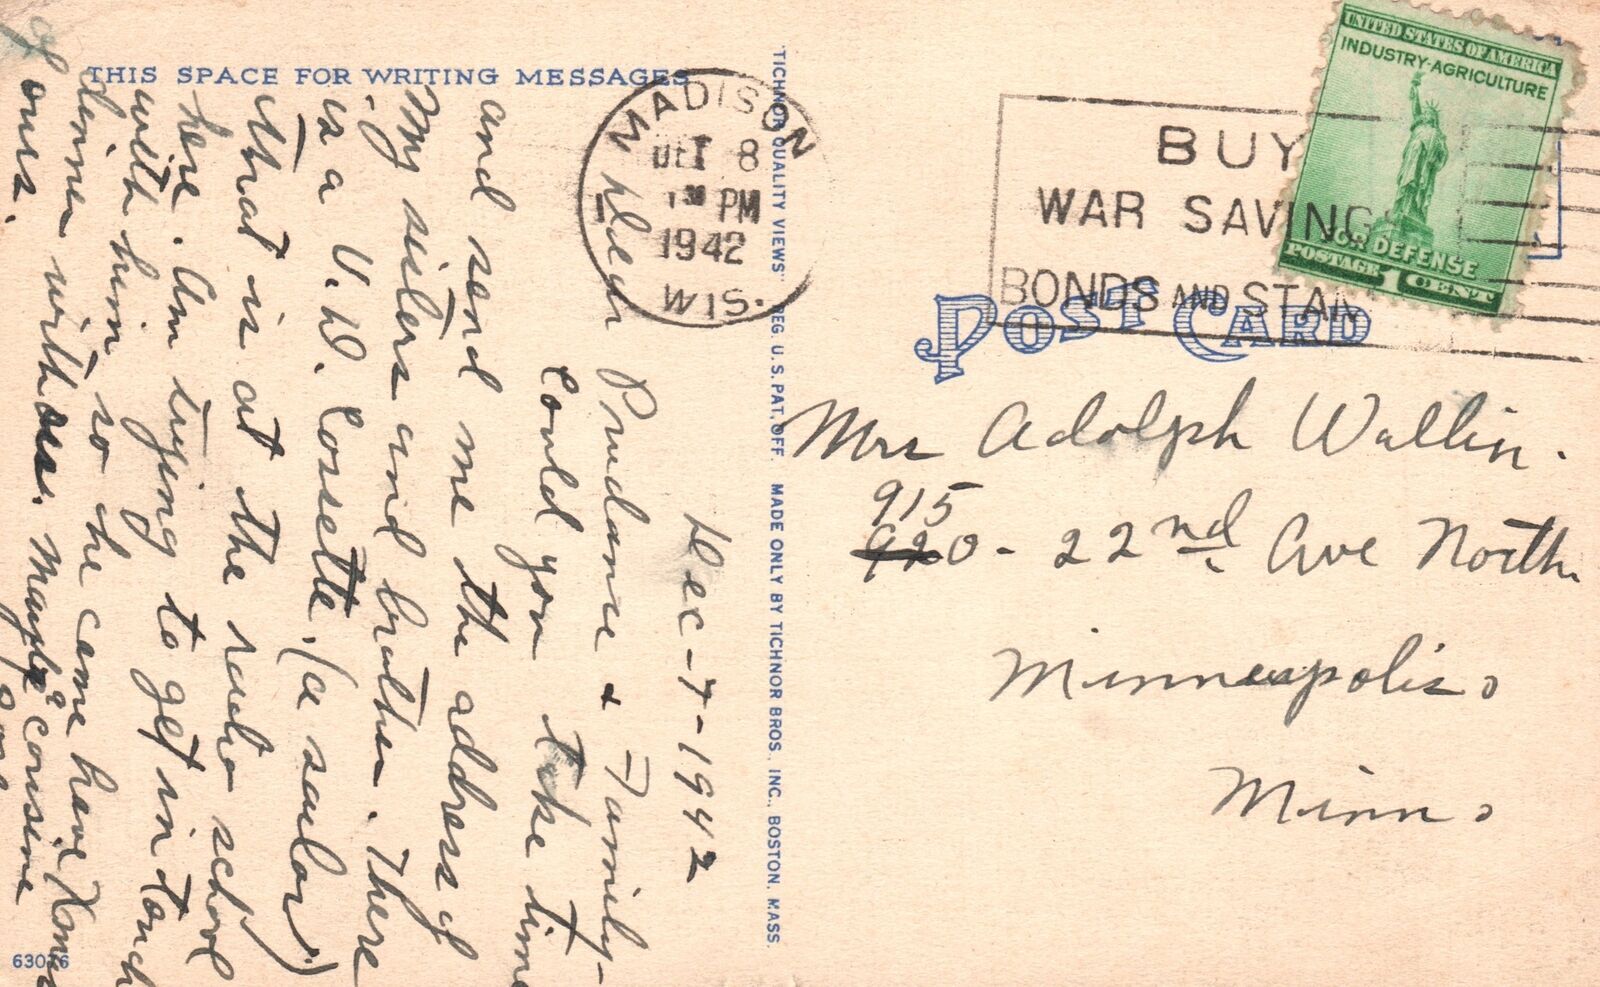 THIS SPACE FOR WRITING MESSAGES
Dec-7-1942
Prudance & Family-
Could you take time
and send me the address of
My sisters and brother. There
is a V.D. Cosette, (a sailor)
that is at the radio school
here. Am trying to get in touch
with him so he come have Xmas
dinner with us. Maybe cousine
of ours.
MADISON
DEC 8
1 30 PM
1942
WIS.
BUY
WAR SAVINGS
BONDS AND STAM
UNITED STATES OF AMERICA
INDUSTRY-AGRICULTURE
FOR DEFENSE
POSTAGE 1 CENT
POST CARD
Mrs Adolph Wallin.
915
920 - 22nd Ave North
Minneapolis
Minn.
'TICHNOR QUALITY VIEWS' REG. U.S. PAT. OFF. MADE ONLY BY TICHNOR BROS., INC., BOSTON, MASS.
63076